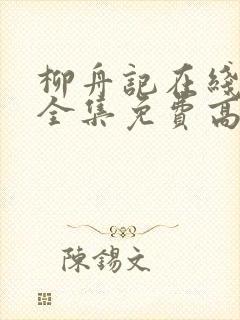 柳舟記在綫
全集免費高
陳錫文